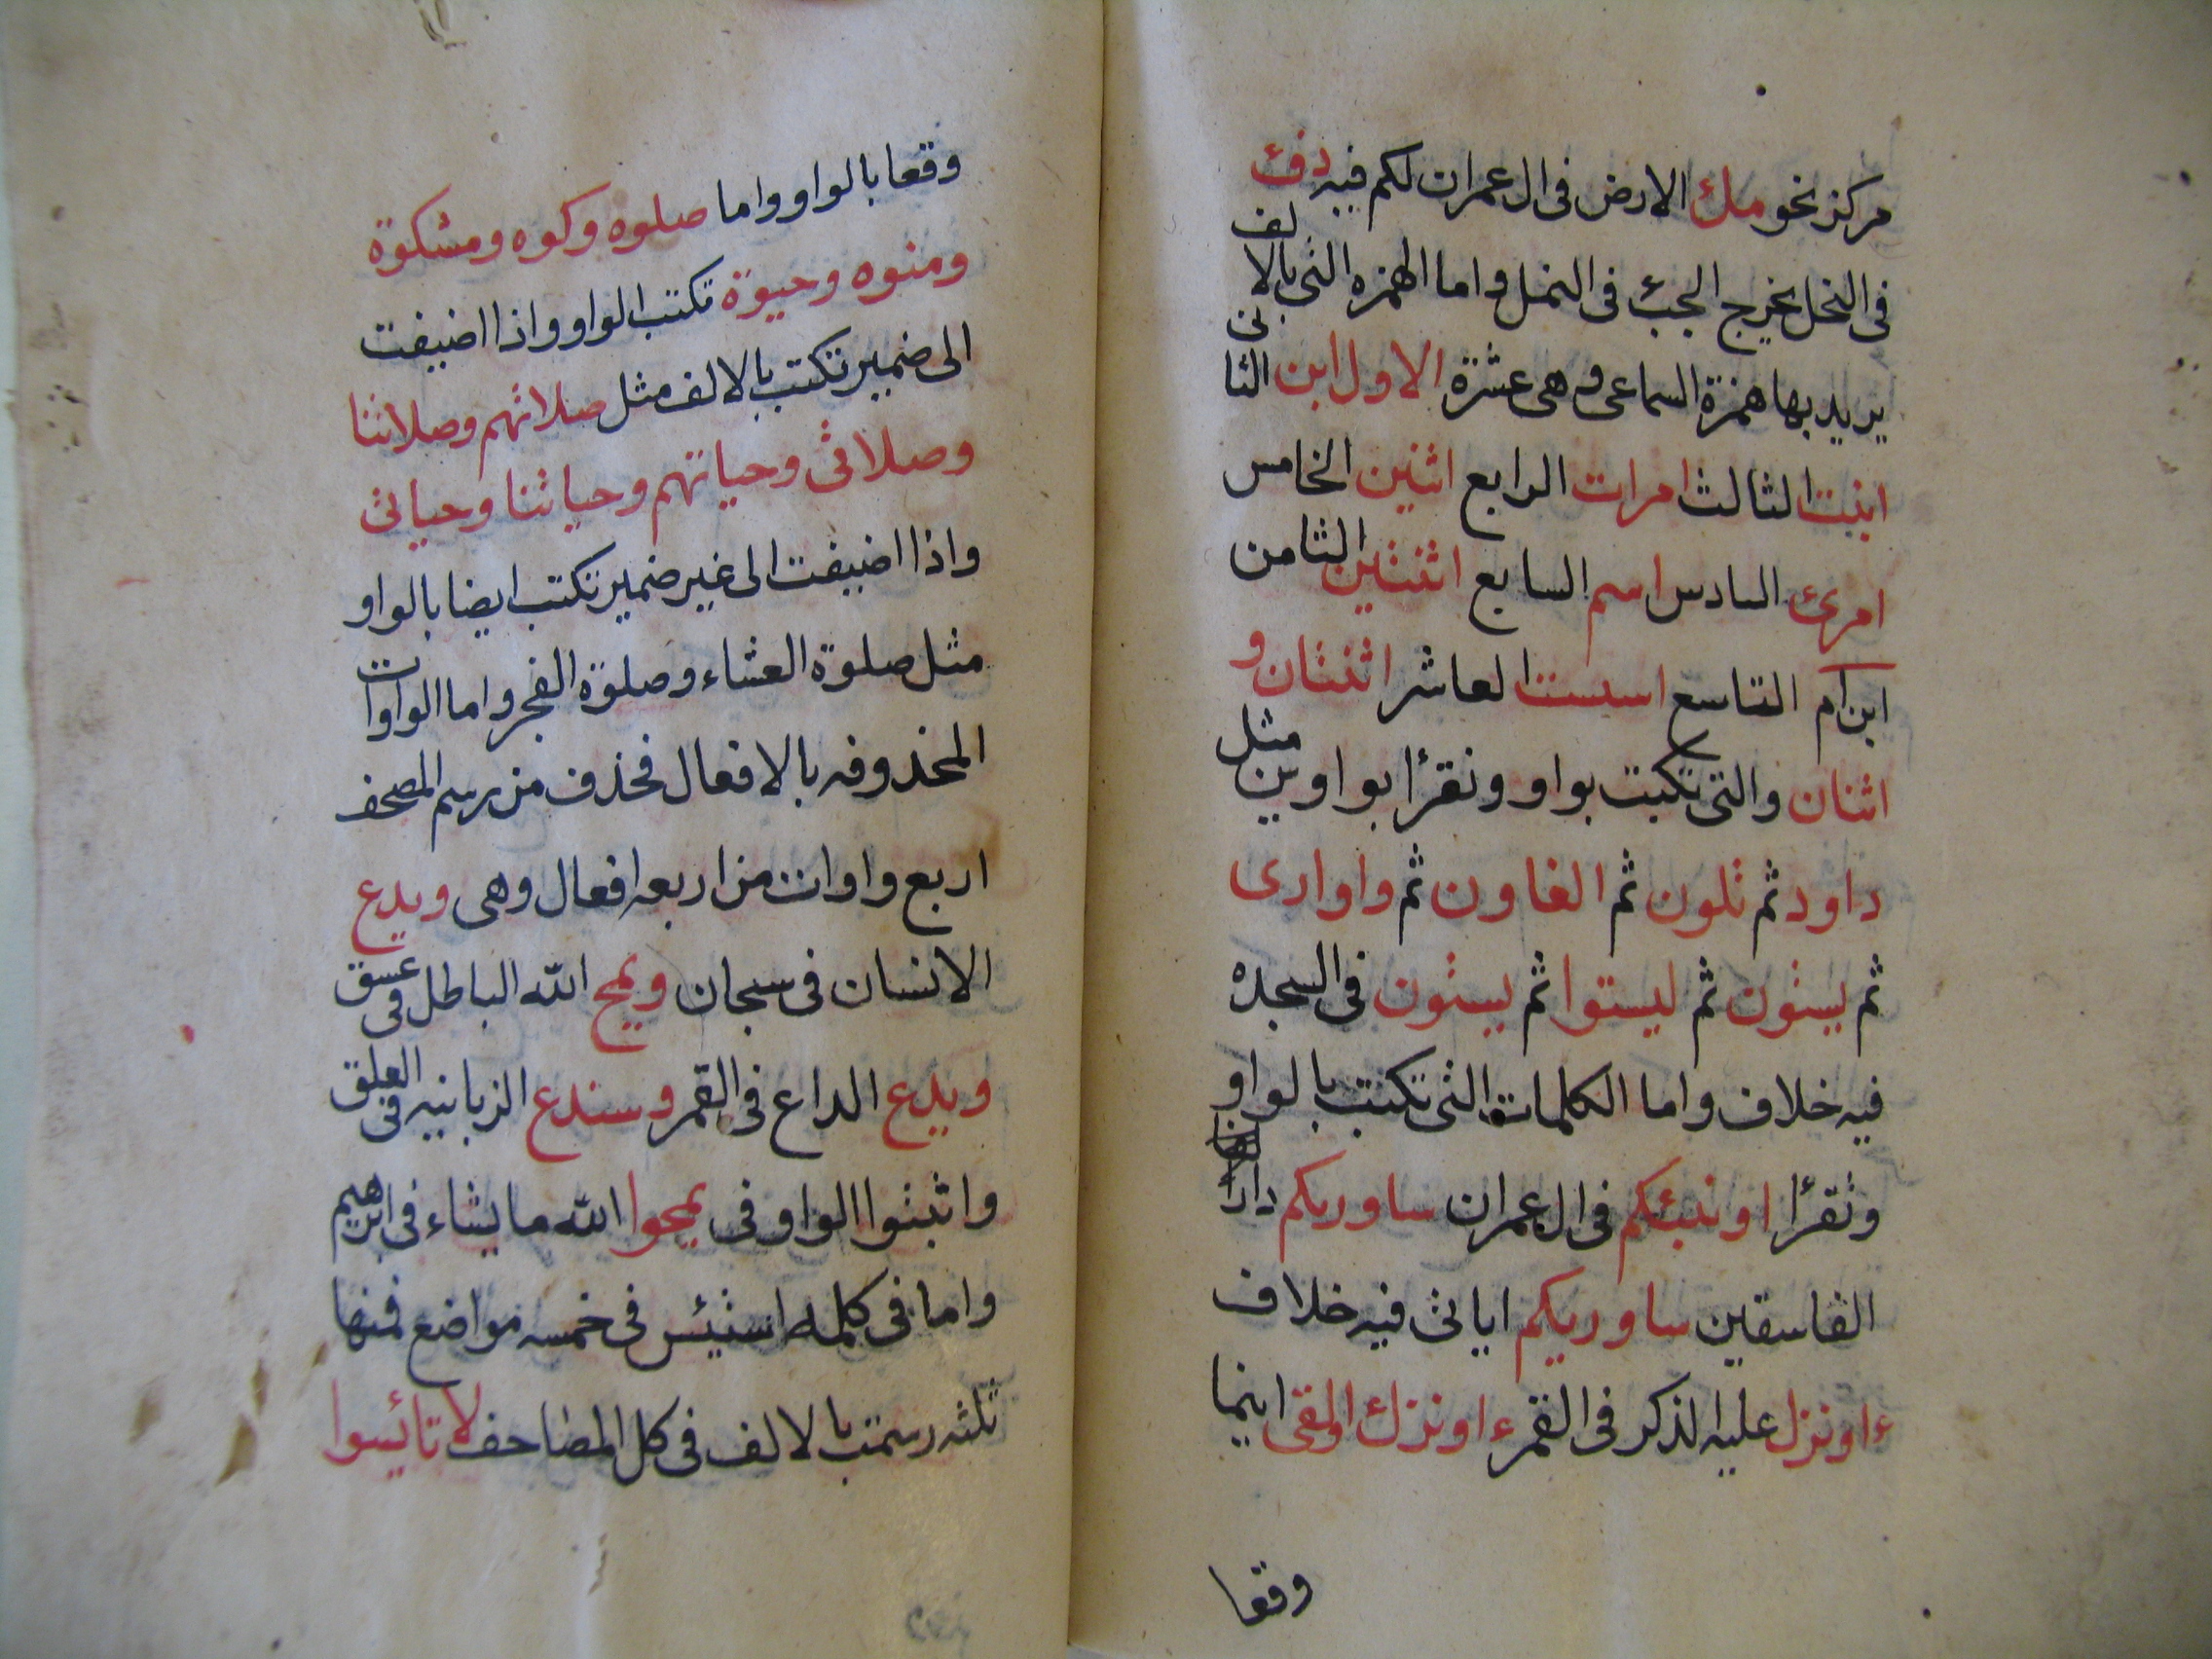 مركز نحو ملئ الارض فى ال عمران لكم فيه دفئ
فى النحل يخرج الجبئ فى النمل واما الهمزه التى بالالف
يريد بها همزة السماعى وهى عشرة الاول ابن الثانى
ابنت الثالث امرات الرابع اثنين الخامس
امرئ السادس اسم السابع اثنتين الثامن
ابن ام التاسع اسست العاشر اثنتان و
اثنان والتى تكبت بواو ونقرأ بواوين مثل
داود ثم تلون ثم الغاون ثم واوارى
ثم يستون ثم ليستوا ثم يستون فى السجده
فيه خلاف واما الكلمات التى تكتب بالواو
وتقرأ اونبئكم فى ال عمران ساوريكم دار
الفاسقين ساوريكم اياتى فيه خلاف
ءاونزل عليه الذكر فى القمر ءاونزك اولقى اينما
وقعا
وقعا بالواو واما صلوه وكوه ومشكوة
ومنوه وحيوة تكتب الواو واذا اضيفت
الى ضمير تكتب بالالف مثل صلاتهم وصلاتنا
وصلاتى وحياتهم وحياتنا وحياتى
واذا اضيفت الى غير ضمير تكتب ايضا بالواو
مثل صلوة العشاء وصلوة الفجر واما الواوات
المحذوفه بالافعال فحذف من رسم المصحف
اربع واوات من اربعه افعال وهى ويدع
الانسان فى سبحان ويمح الله الباطل فى عسق
ويدع الداع فى القمر وسندع الزبانيه فى العلق
واثبتوا الواو فى يمحوا الله ما يشاء فى ابرهيم
واما فى كلمه استيئس فى خمسه مواضع فمنها
ثلثه رسمت بالالف فى كل المصاحف لا تائيسوا